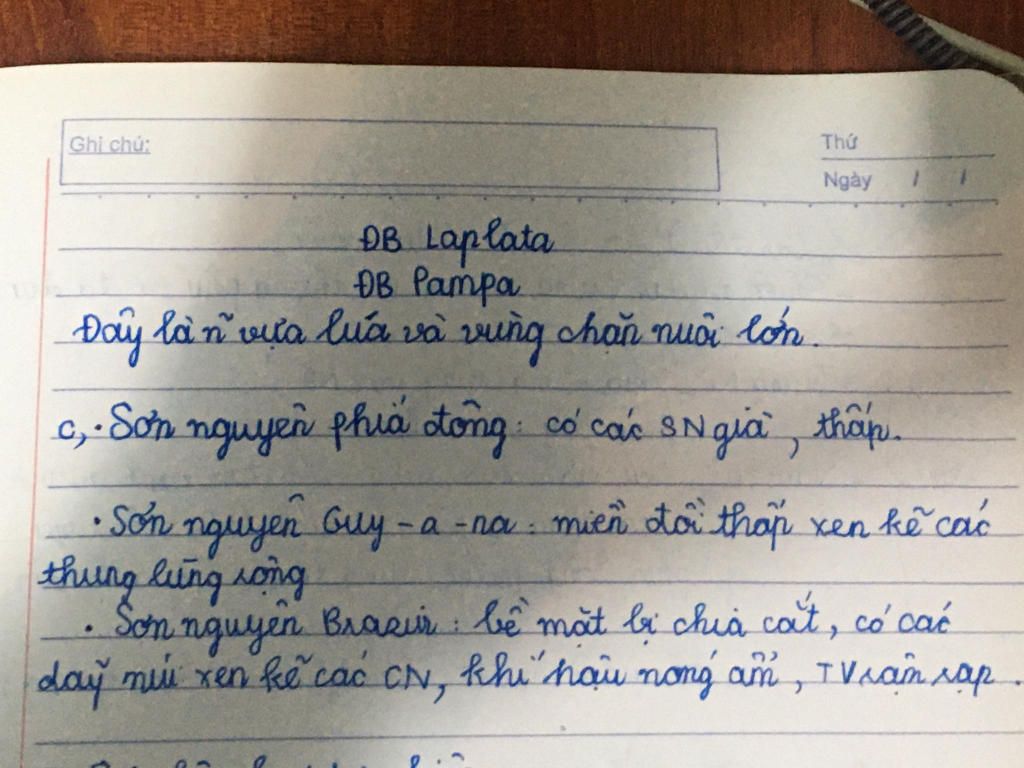 Ghi chú:
Thứ
Ngày / /
ĐB Laplata
ĐB Pampa
Đây là ñ vựa lúa và vùng chăn nuôi lớn.
c, · Sơn nguyên phía đông: có các SN già, thấp.
· Sơn nguyên Guy-a-na: miền đồi thấp xen kẽ các
thung lũng rộng
· Sơn nguyên Braxin: bề mặt bị chia cắt, có các
dãy núi xen kẽ các CN, khí hậu nóng ẩm, TV rậm rạp.